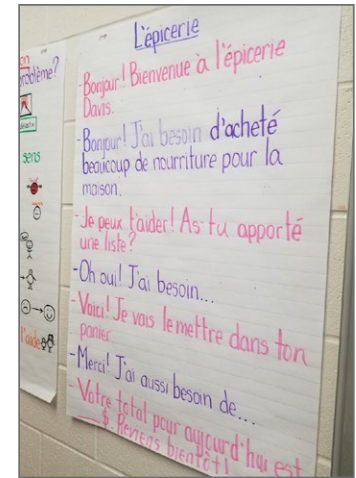 on
problème?
sens
l'aide
L'épicerie
-Bonjour! Bienvenue à l'épicerie
Davis.
-Bonjour! J'ai besoin d'acheté
beaucoup de nourriture pour la
maison.
-Je peux t'aider! As-tu apporté
une liste?
-Oh oui! J'ai besoin...
-Voici! Je vais le mettre dans ton
panier.
-Merci! J'ai aussi besoin de...
-Votre total pour aujourd'hui est
___$. Reviens bientôt!